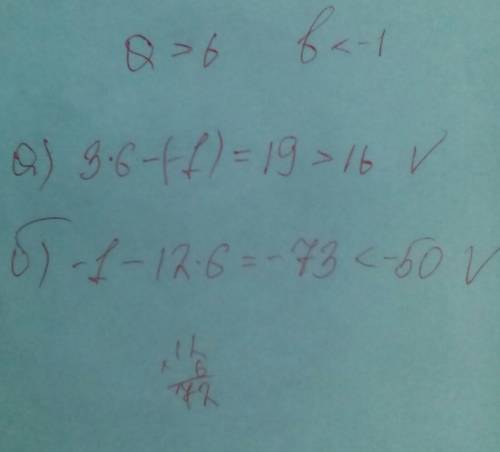 a > 6 b < -1
a) 3·6-(-1) = 19 > 16 V
б) -1 - 12·6 = -73 < -50 V
12
× 6
72